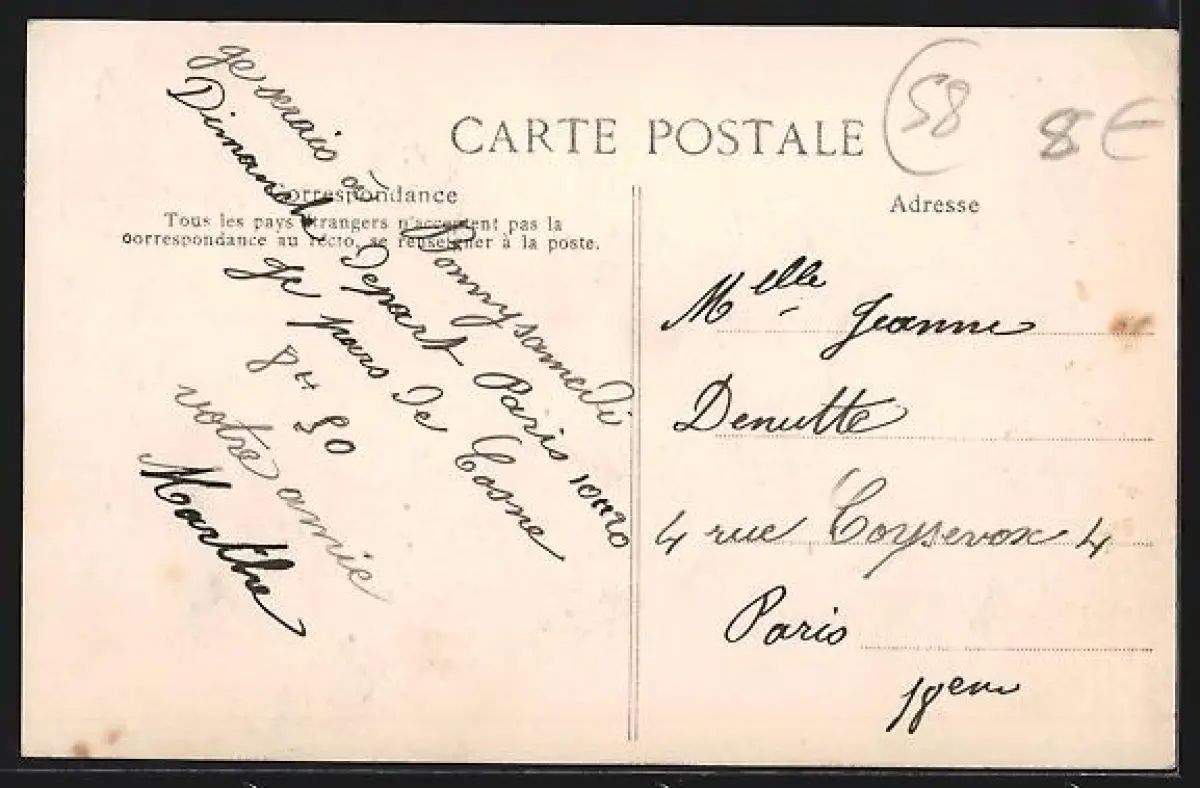 CARTE POSTALE
58
8 €
Correspondance
Tous les pays étrangers n'acceptent pas la
correspondance au recto, se renseigner à la poste.
Adresse
Je serais à Pomuy samedi
Dimanche Depart Paris 10H20
Je pars de Cosne
8H 50
votre amie
Marthe
Melle Jeanne
Denutte
4 rue Coysevox 4
Paris
18eme